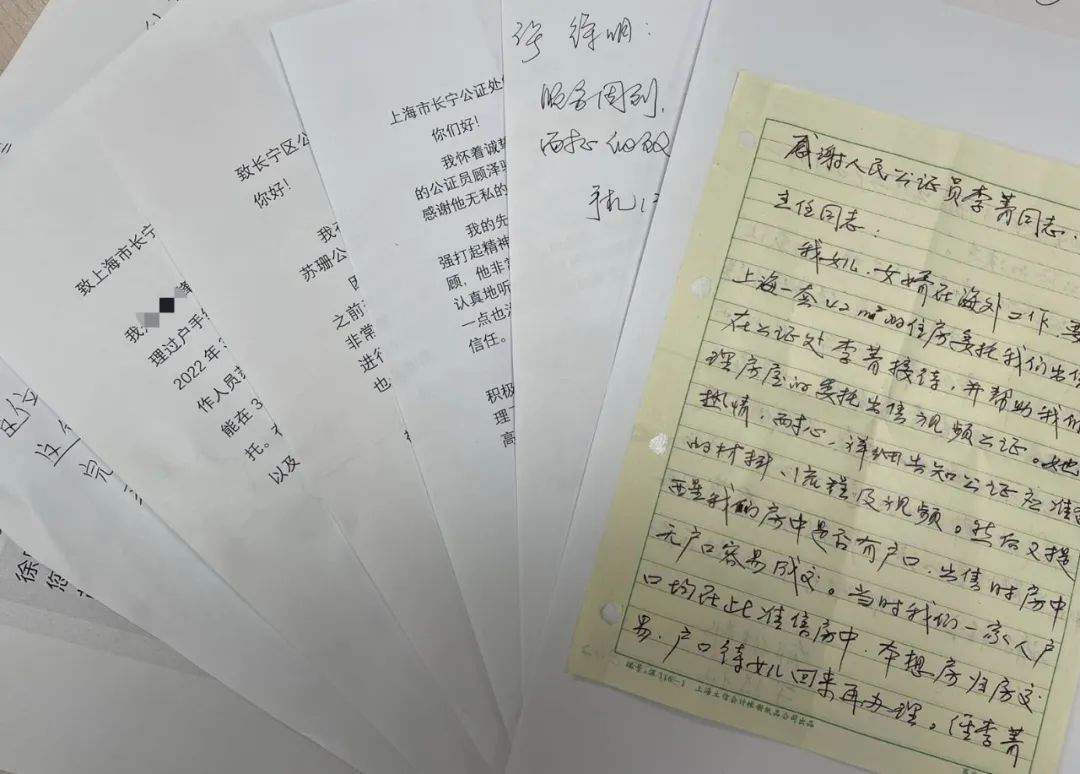 致上海市长宁
我
理过户手
2022年3
作人员
能在3
托。
以及
致长宁区公
你好!
我
苏珊公
之前
非常
进行
也
上海市长宁公证处
你们好!
我怀着诚挚
的公证员顾泽
感谢他无私的
我的先
强打起精神
顾,他非常
认真地听
一点也
信任。
积极
理
高
徐明:
服务周到,
耐心细致
手机
感谢人民公证员李菁同志.
主任同志:
我女儿、女婿在海外工作,要
上海一套42m²的住房委托我们出售
在公证处李菁接待,并帮助我们
理房屋的委托出售视频公证。她
热情、耐心、详细告知公证应准
的材料、流程及视频。然后又提
醒我的房中是否有户口,出售时房中
无户口容易成交。当时我们一家人户
口均在此准售房中,本想房归房交
易,户口待女儿回来再办理。经李菁
编号:深116-1 上海立信会计账册纸品公司出品
徐
您